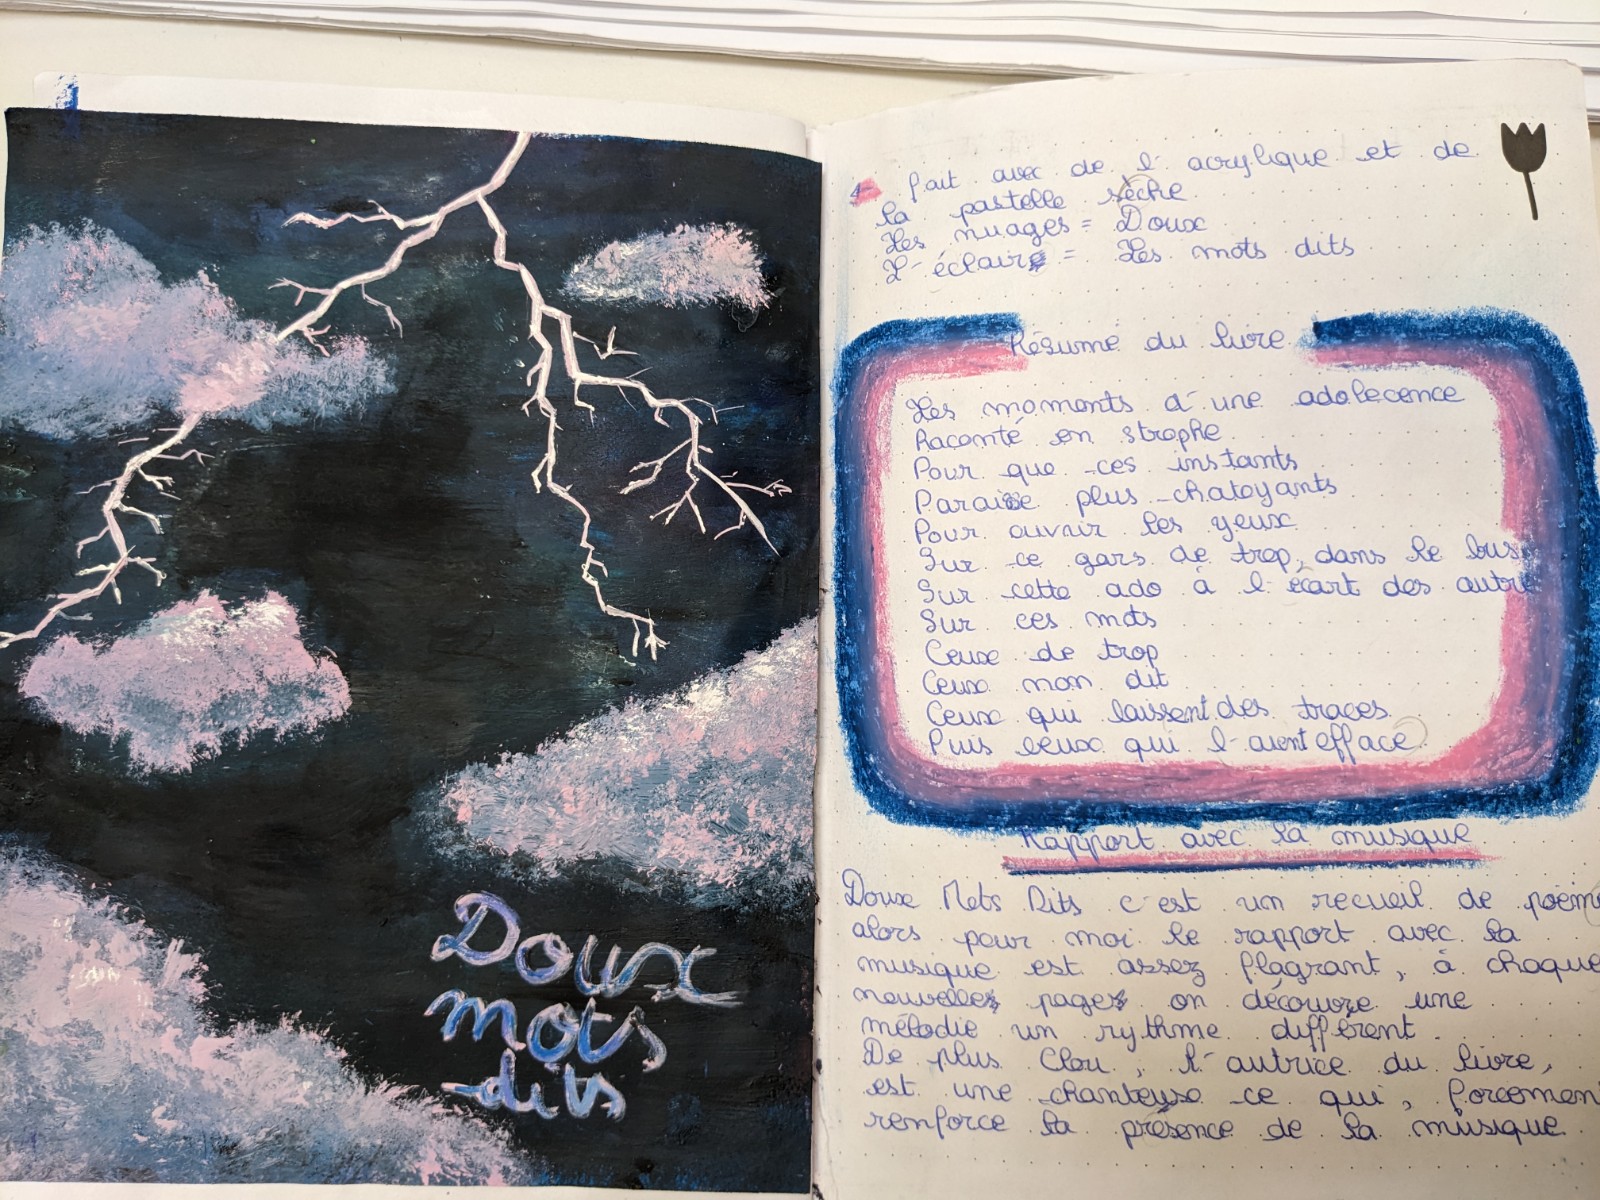 Doux
mots
dits
1 fait avec de l'acrylique et de
la pastelle sèche
Les nuages = Doux
L'éclair = Les mots dits
Résumé du livre
Les moments d'une adolecence
Raconté en strophe
Pour que ces instants
Paraisse plus chatoyants
Pour ouvrir les yeux
Sur ce gars de trop, dans le bus
Sur cette ado à l'écart des autre
Sur ces mots
Ceux de trop
Ceux non dit
Ceux qui laissent des traces
Puis ceux qui l'aient efface
Rapport avec la musique
Doux Mots Dits c'est un recueil de poem
alors pour moi le rapport avec la
musique est assez flagrant, à chaque
nouvelle page on découvre une
mélodie un rythme différent.
De plus Clou, l'autrice du livre,
est une chanteuse ce qui, forcemen
renforce la présence de la musique.